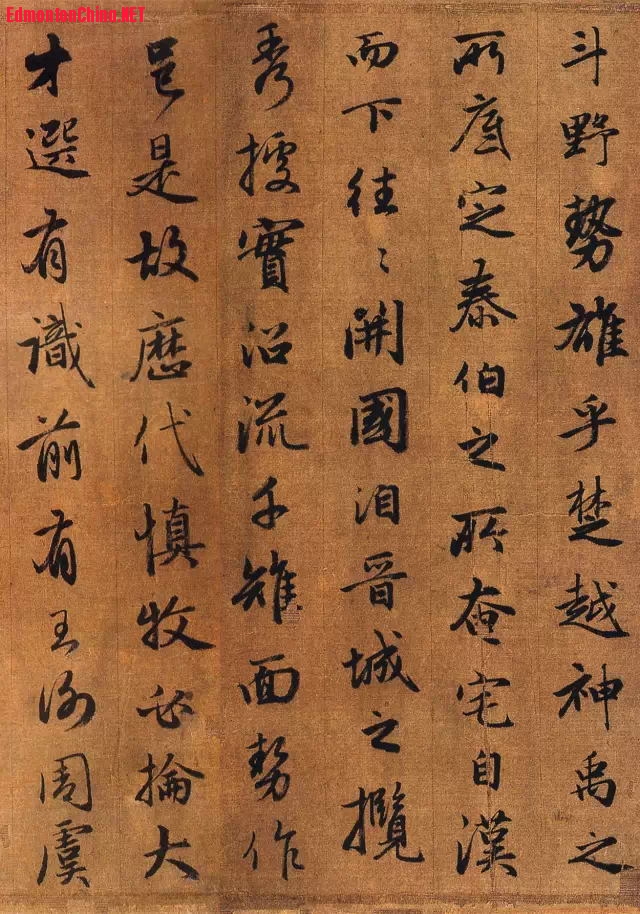 EdmontonChina.NET
斗野勢雄乎楚越神禹之
所底定泰伯之所奄宅自漢
而下往〻開國洎晉城之攬
秀擅實沿流千雉面勢作
邑是故歷代慎牧必掄大
才選有識前有王謝周虞